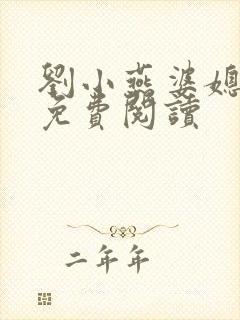 劉小燕婆媳
免費閱讀
二年年